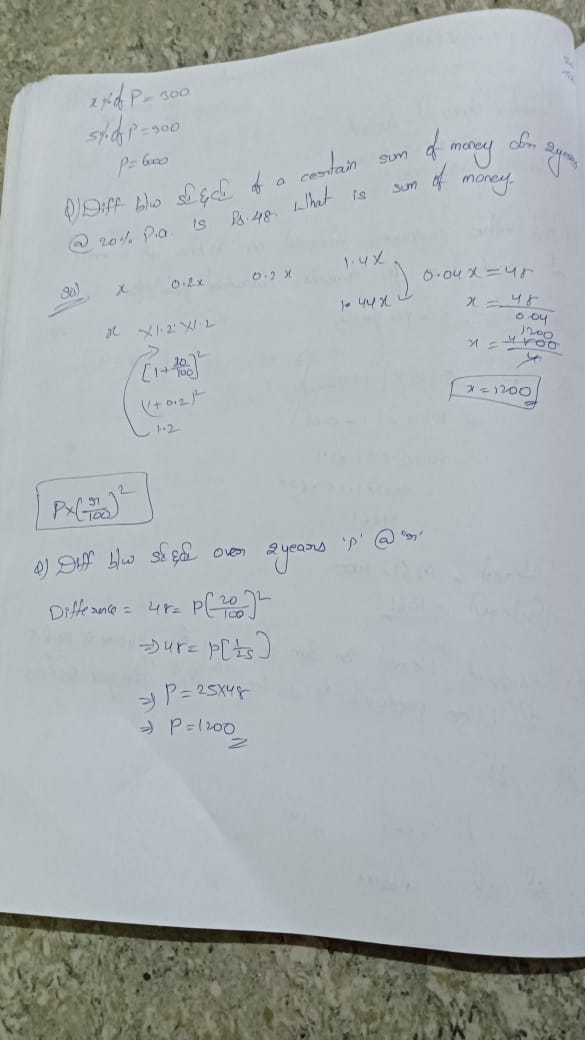 x% of P = 300
5% of P = 300
P = 6000
Q) Diff b/w SI & CI of a certain sum of money for 2 years
@ 20% P.a. is Rs. 48. What is sum of money.
Sol) x 0.2x 0.2x 1.4x
1.44x
0.04x = 48
x = 48/0.04
x = 4800/4 1200
x = 1200
x x1.2 x1.2
[1+20/100]²
(1+0.2)²
1.2
P×(r/100)²
Q) Diff b/w SI & CI over 2 years 'p' @ 'r'
Difference = 48 = P[20/100]²
⇒ 48 = P[1/25]
⇒ P = 25×48
⇒ P = 1200